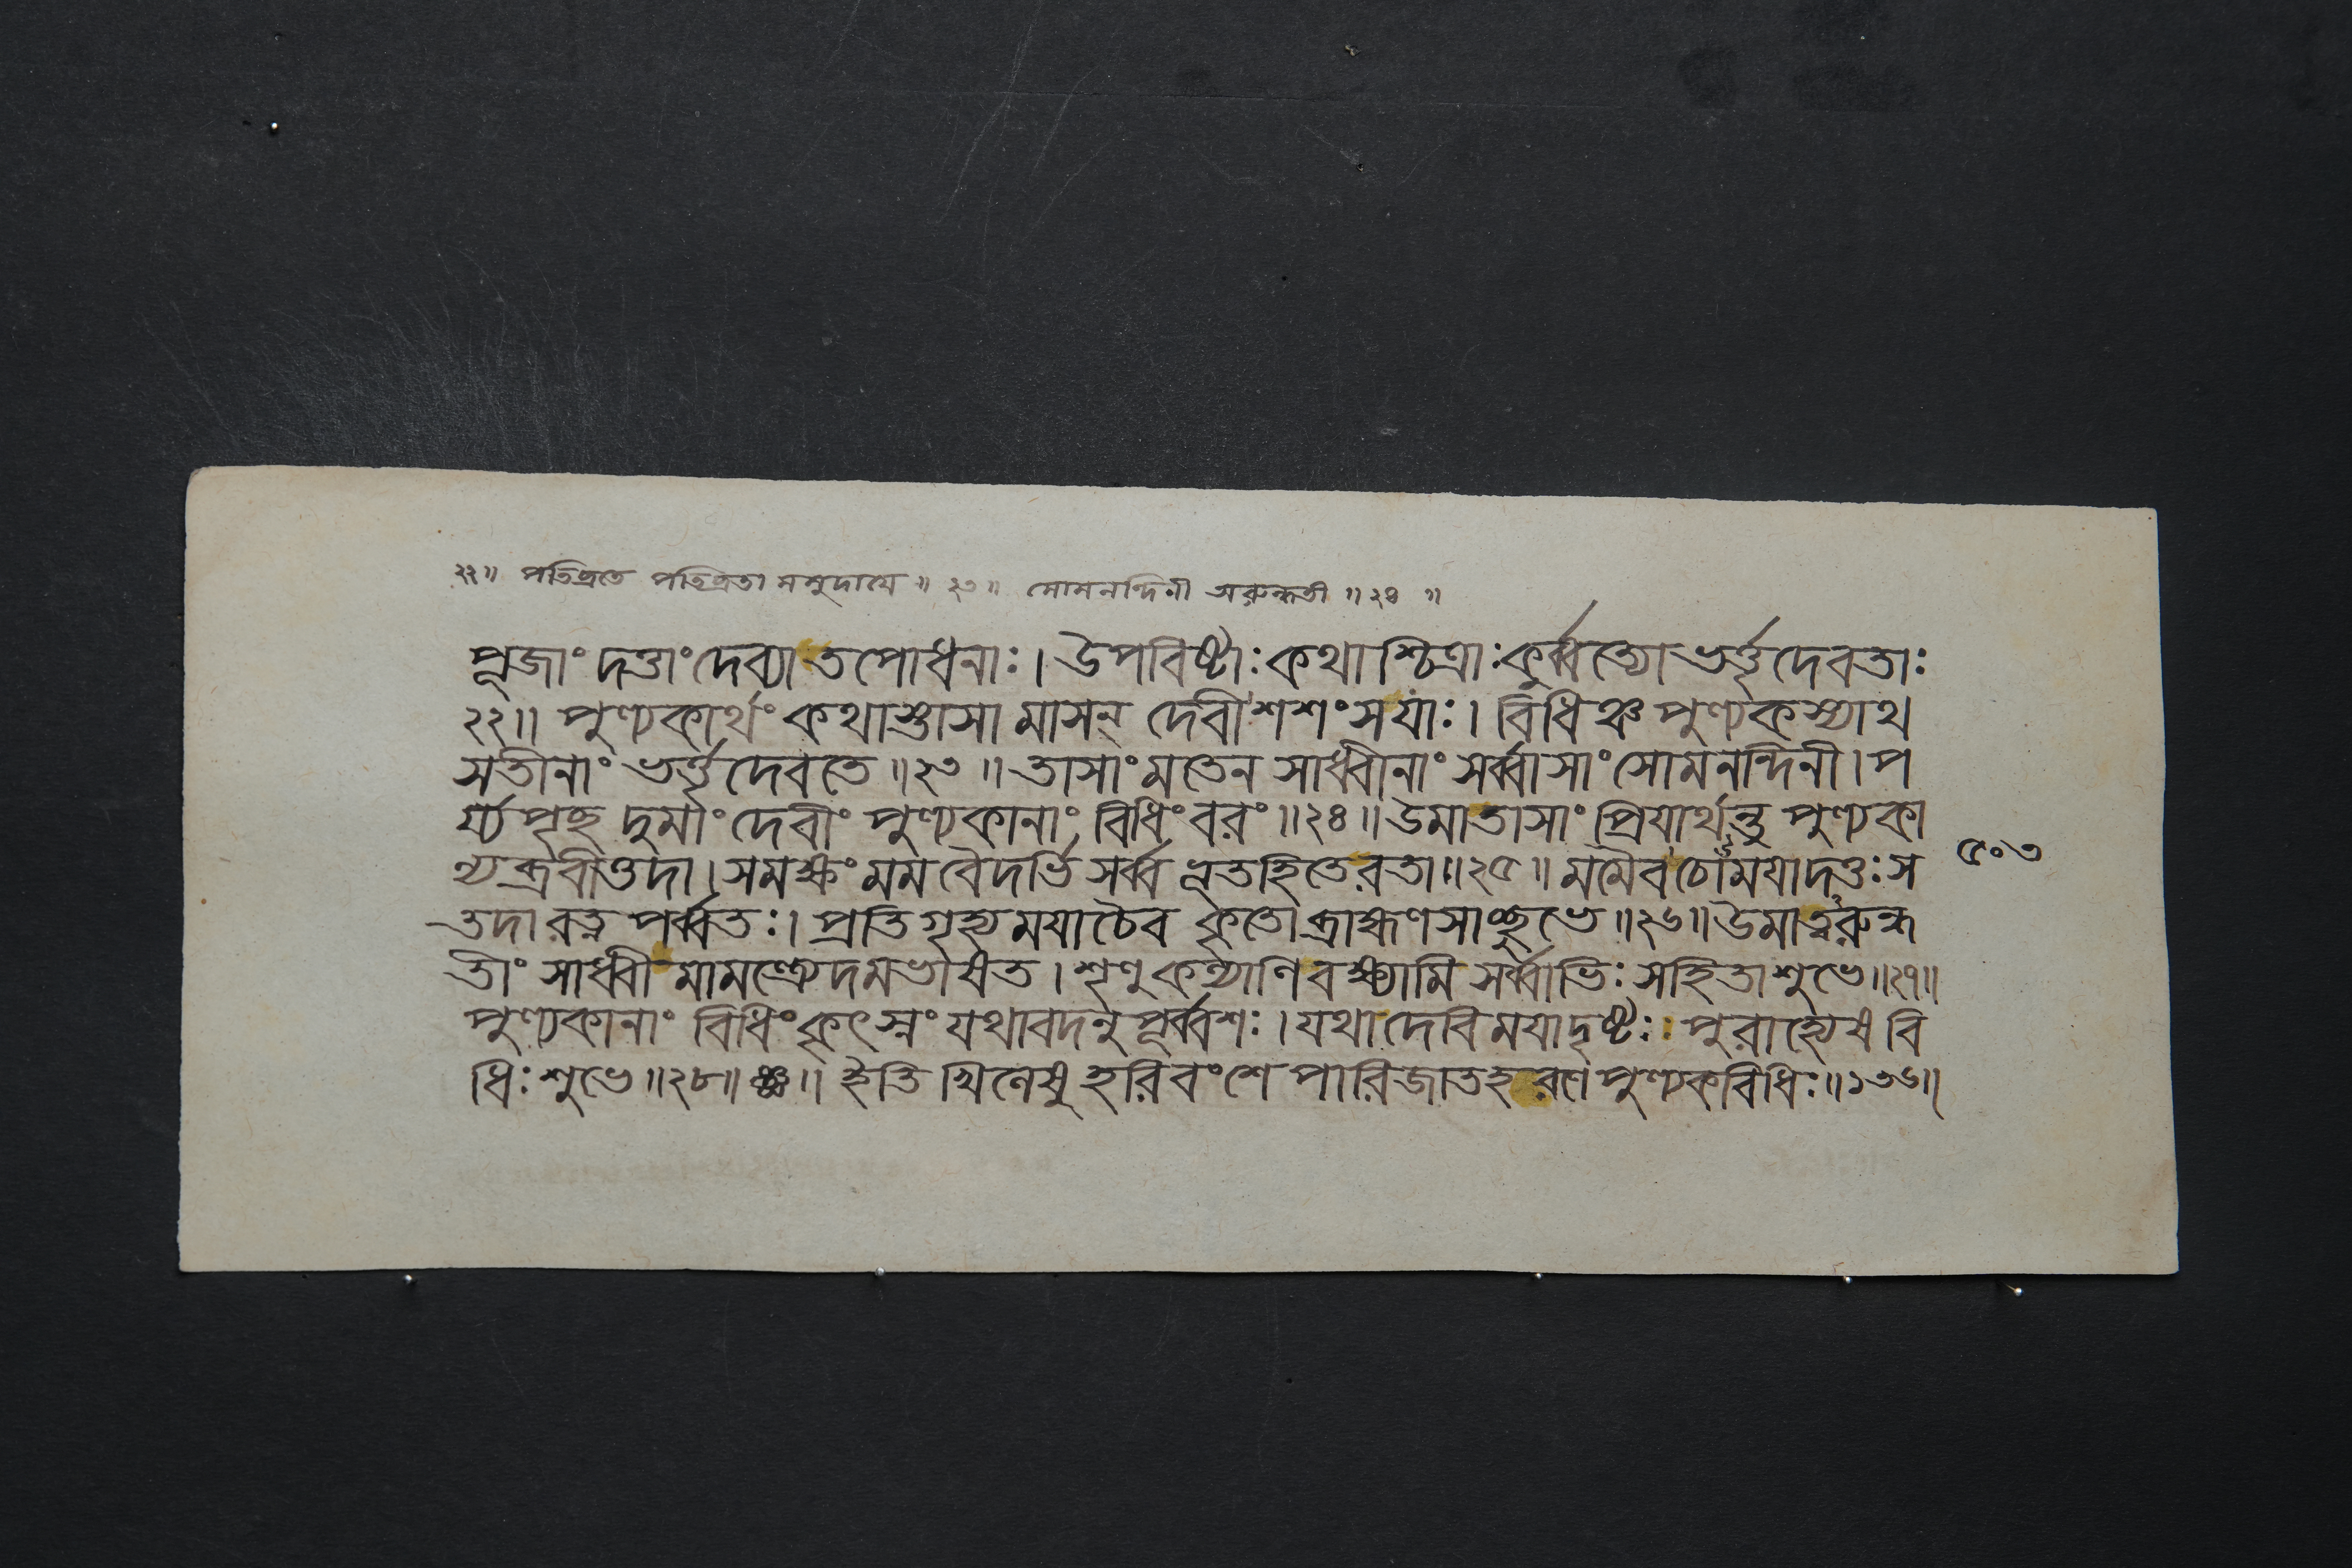 ২২॥ পতিব্রতে পতিব্রতা সমুদায়ে॥ ২৩॥ সোমনন্দিনী অরুন্ধতী॥২৪॥
পূজাং দত্তাং দেব্যা তপোধনাঃ। উপবিষ্টাঃ কথাশ্চিত্রাঃ কুর্ব্বত্যো ভর্ত্তৃদেবতাঃ
২২॥ পুণ্যকার্থং কথাস্তাসা মাসন্ দেবী শশংস যাঃ। বিধিঞ্চ পুণ্যকস্যাথ
সতীনাং ভর্ত্তৃদেবতে॥২৩॥ তাসাং মতেন সাধ্বীনাং সর্ব্বাসাং সোমনন্দিনী। প
র্য্যপৃচ্ছ দুমাং দেবীং পুণ্যকানাং বিধিং বরং॥২৪॥ উমা তাসাং প্রিয়ার্থন্তু পুণ্যকা
ন্যব্রবীত্তদা। সমক্ষং মম বৈদর্ভি সর্ব্বভূতহিতে রতা॥২৫॥ মমৈব চোময়া দত্তঃ স
৫০৩
তদা রত্নপর্ব্বতঃ। প্রতিগৃহ্য ময়া চৈব কৃতো ব্রাহ্মণসাচ্ছুভে॥২৬॥ উমা ত্বরুন্ধ
তীং সাধ্বী মামন্ত্র্যেদমভাষত। শৃণু কল্যাণি বক্ষ্যামি সর্ব্বাভিঃ সহিতা শুভে॥২৭॥
পুণ্যকানাং বিধিং কৃৎস্নং যথাবদনুপূর্ব্বশঃ। যথা দেবি ময়া দৃষ্টঃ পুরা হ্যেষ বি
ধিঃ শুভে॥২৮॥ ইতি খিলেষু হরিবংশে পারিজাতহরণে পুণ্যকবিধিঃ॥১৩৬॥